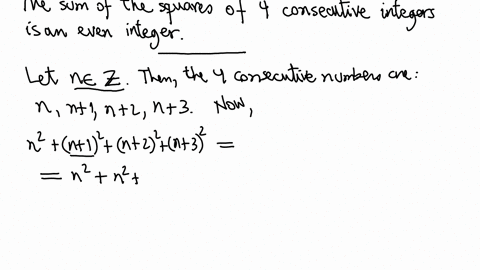 The sum of the squares of 4 consecutive integers
is an even integer.
Let n∈ℤ. Then, the 4 consecutive numbers are:
n, n+1, n+2, n+3. Now,
n² + (n+1)² + (n+2)² + (n+3)² =
= n² + n² +